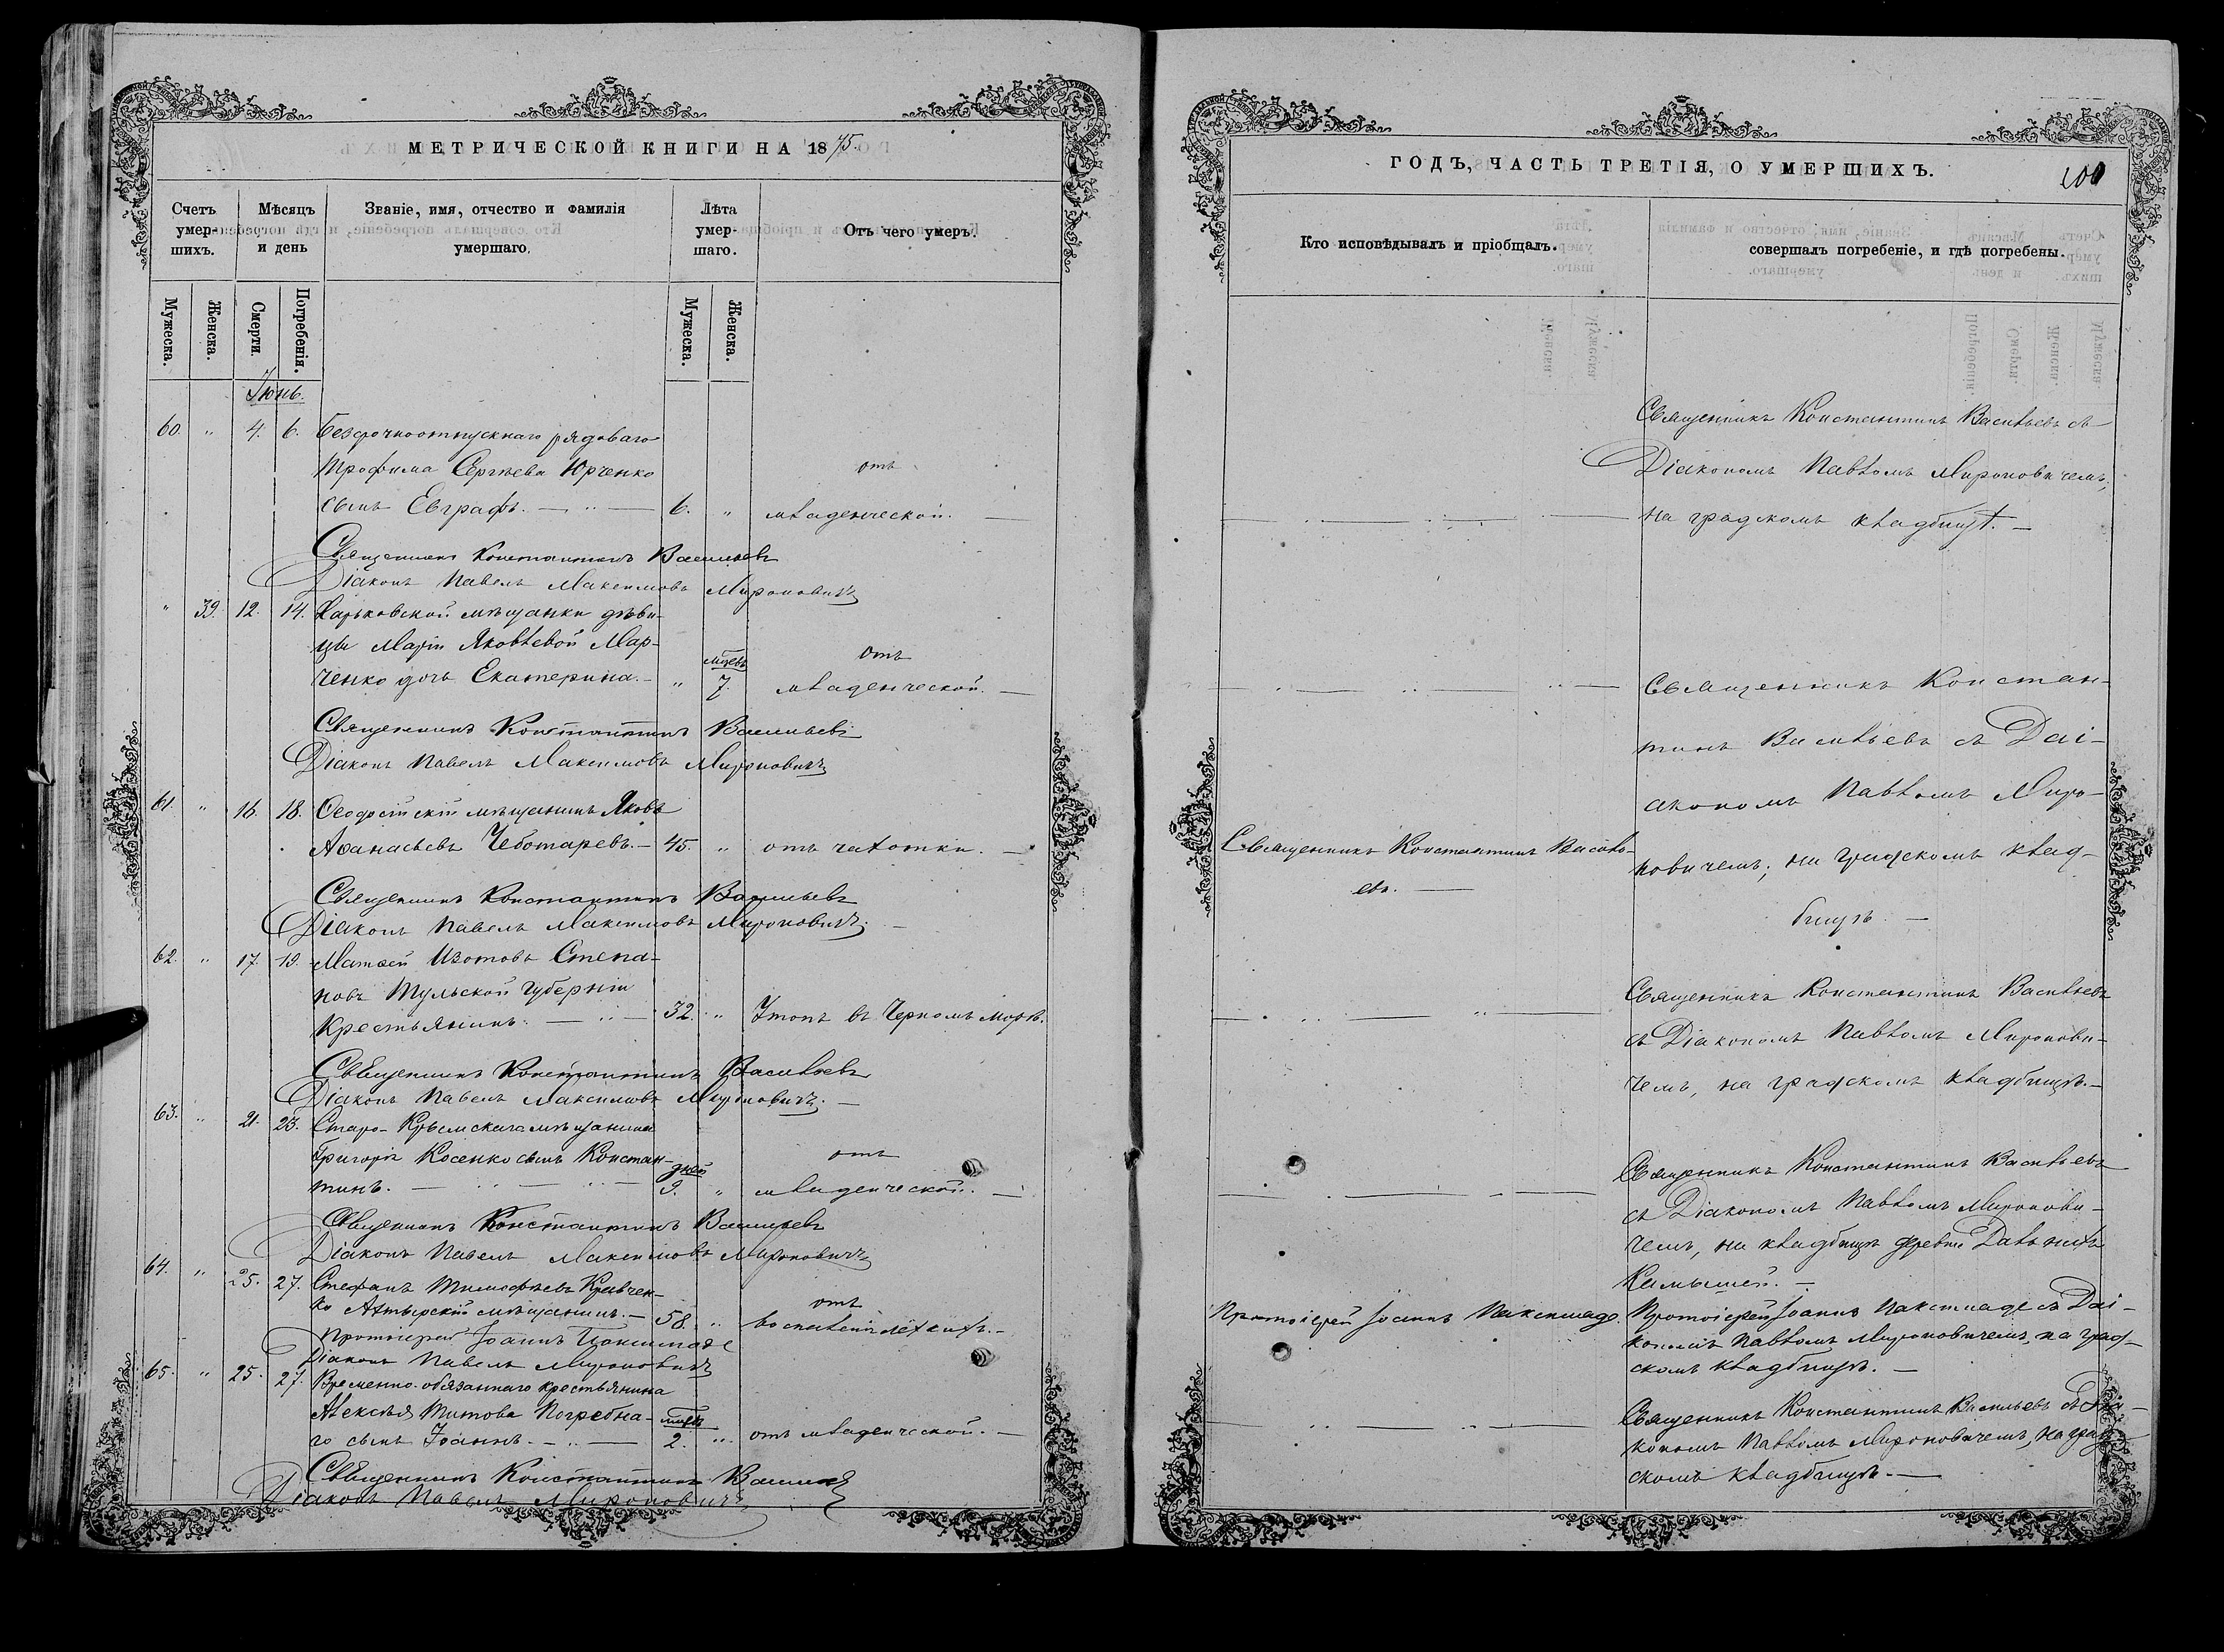 МЕТРИЧЕСКОЙ КНИГИ НА 1875.
Счетъ умер-шихъ.
Мѣсяцъ и день
Званіе, имя, отчество и фамилія умершаго.
Лѣта умер-шаго.
Отъ чего умеръ.
Мужеска. Женска. Смерти. Погребенія. Мужеска. Женска.
Іюнь.
60. " 4. 6. Безсрочноотпускнаго рядоваго
Трофима Сергѣева Юрченко отъ
сынъ Евграфъ. 6. " младенческой.
Священникъ Константинъ Васильевъ
Діаконъ Павелъ Максимовъ Мироновичъ
" 39. 12. 14. Харьковской мѣщанки дѣви-
цы Маріи Яковлевой Мар- отъ
ченко дочь Екатерина. " мцевъ 7. младенческой.
Священникъ Константинъ Васильевъ
Діаконъ Павелъ Максимовъ Мироновичъ
61. " 16. 18. Ѳеодосійскій мѣщанинъ Яковъ
Аѳанасьевъ Чеботаревъ. 45. " отъ чахотки.
Священникъ Константинъ Васильевъ
Діаконъ Павелъ Максимовъ Мироновичъ.
62. " 17. 19. Матѳей Изотовъ Степа-
новъ Тульской Губерніи
крестьянинъ. 32. " Утопъ въ Черномъ морѣ.
Священникъ Константинъ Васильевъ
Діаконъ Павелъ Максимовъ Мироновичъ.
63. " 21. 23. Старо-Крымскаго мѣщанина
Григорія Косенко сынъ Констан- отъ
тинъ. дней 9. " младенческой.
Священникъ Константинъ Васильевъ
Діаконъ Павелъ Максимовъ Мироновичъ
64. " 25. 27. Стефанъ Тимофѣевъ Кравчен-
ко Ахтырскій мѣщанинъ. 58. " отъ воспаленія лёгкихъ.
Протоіерей Іоаннъ
Діаконъ Павелъ Мироновичъ
65. " 25. 27. Временно-обязаннаго крестьянина
Алексѣя Титова Погребна-
го сынъ Іоаннъ. мцевъ 2. " отъ младенческой.
Священникъ Константинъ Васильевъ
Діаконъ Павелъ Мироновичъ
ГОДЪ, ЧАСТЬ ТРЕТІЯ, О УМЕРШИХЪ.
100
Кто исповѣдывалъ и пріобщалъ.
совершалъ погребеніе, и гдѣ погребены.
Священникъ Константинъ Васильевъ съ
Діакономъ Павломъ Мироновичемъ,
на градскомъ кладбищѣ.
Священникъ Констан-
тинъ Васильевъ съ Dаі-
акономъ Павломъ Миро-
Священникъ Константинъ Василь-
евъ.
новичемъ, на градскомъ клад-
бищѣ.
Священникъ Константинъ Васильевъ
съ Діакономъ Павломъ Миронови-
чемъ, на градскомъ кладбищѣ.
Священникъ Константинъ Васильевъ
съ Діакономъ Павломъ Миронови-
чемъ, на кладбищѣ деревни Дальнихъ
Камышей.
Протоіерей Іоаннъ
Протоіерей Іоаннъ съ Dаі-
кономъ Павломъ Мироновичемъ, на град-
скомъ кладбищѣ.
Священникъ Константинъ Васильевъ съ Діа-
кономъ Павломъ Мироновичемъ, на град-
скомъ кладбищѣ.